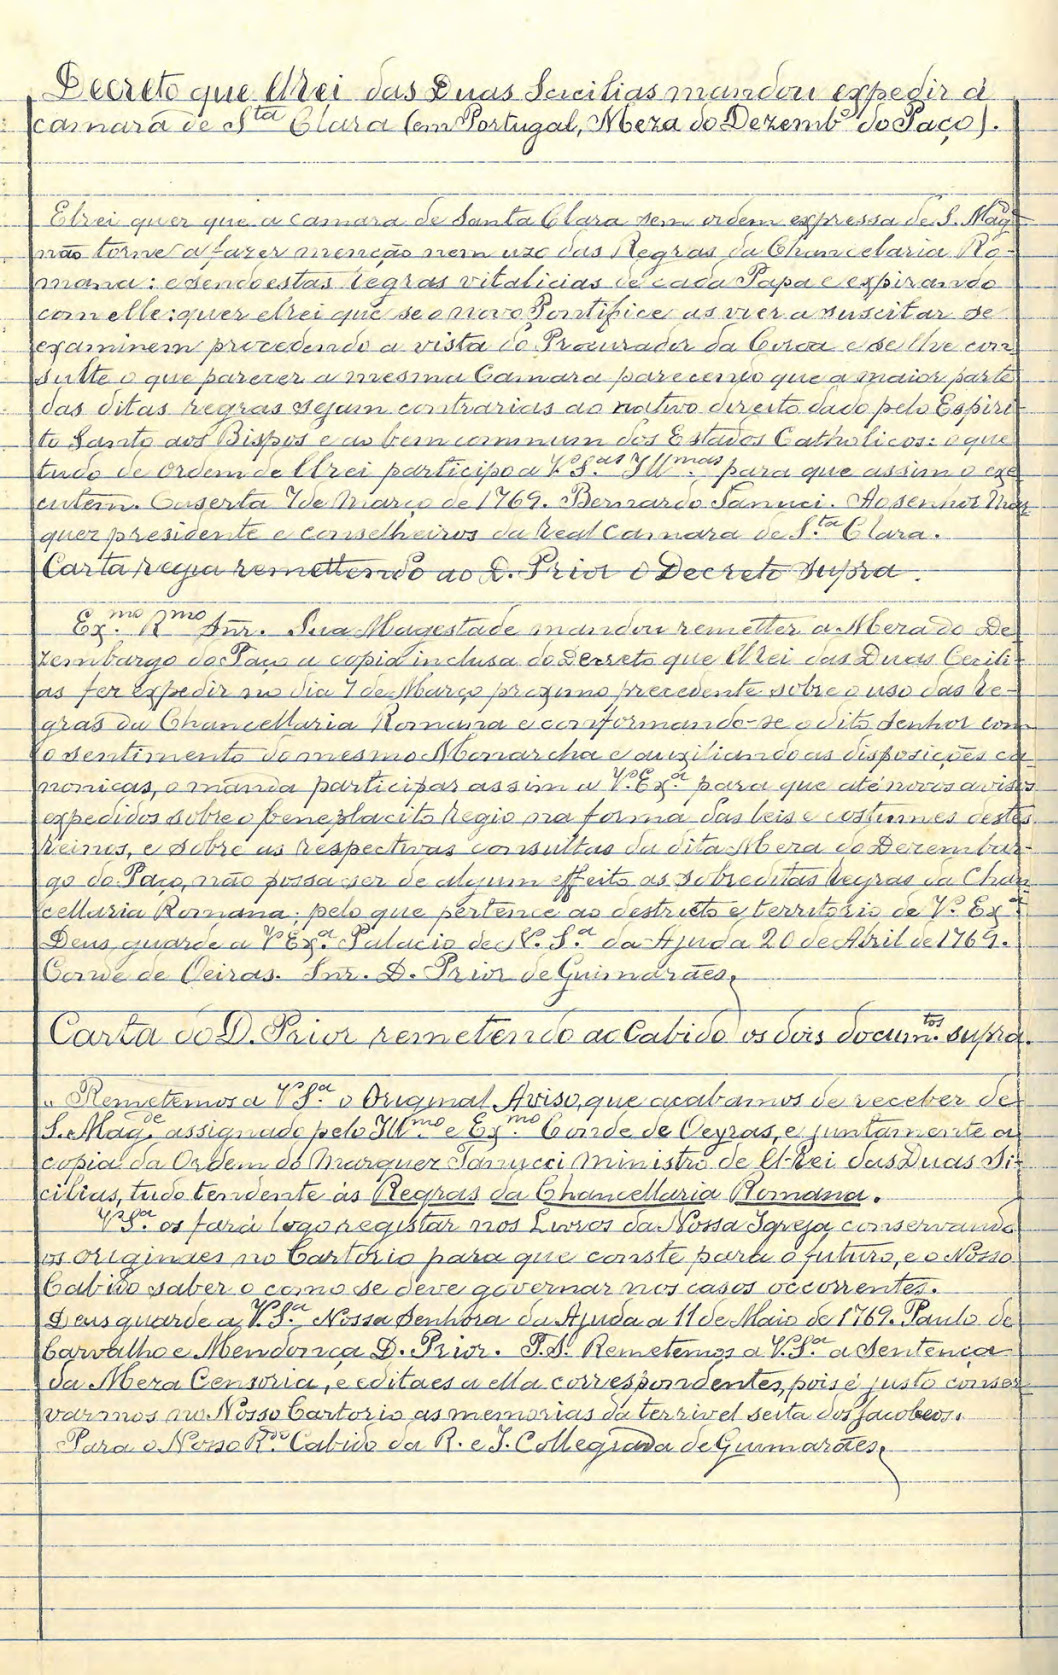 Decreto que Elrei das Duas Sicilias mandou expedir á
camara de Sta Clara (em Portugal, Meza do Dezembº do Paço).
Elrei quer que a camara de Santa Clara sem ordem expressa de S. Magde
não torne a fazer menção nem uzo das Regras da Chancelaria Ro-
mana: e sendo estas regras vitalicias de cada Papa e expirando
com elle: quer elrei que se o novo Pontifice as vier a suscitar se
examinem procedendo a vista do Procurador da Coroa e se lhe con
sulte o que parecer a mesma Camara parecendo que a maior parte
das ditas regras sejam contrarias ao nativo direito dado pelo Espiri-
to Santo aos Bispos e ao bem commum dos Estados Catholicos: o que
tudo de Ordem de Elrei participo a V.S.as Illmas para que assim o exe
cutem. Caserta 7 de Março de 1769. Bernardo Tanuci. Ao senhor Mar
quez presidente e conselheiros da Real Camara de S.ta Clara.
Carta regia remettendo ao D. Prior o Decreto supra.
Ex.mo Rmo Snr. Sua Magestade mandou remetter a Meza do De
zembargo do Paço a copia inclusa do Decreto que Elrei das Duas Cecili-
as fez expedir no dia 7 de Março proximo precedente sobre o uso das Re-
gras da Chancellaria Romana e conformando-se o dito Senhor com
o sentimento do mesmo Monarcha e auxiliando as disposições ca
nonicas, o manda participar assim a V.Ex.a para que até novos avisos
expedidos sobre o beneplacito Regio na forma das leis e costumes destes
Reinos, e sobre as respectivas consultas da dita Meza do Dezembar-
go do Paço, não possa ser de algum effeito as sobreditas Regras da Chan
cellaria Romana; pelo que pertence ao destricto e territorio de V. Ex.a
Deus guarde a V Ex.a Palacio de N. S.a da Ajuda 20 de Abril de 1769.
Conde de Oeiras. Snr. D. Prior de Guimarães.
Carta do D. Prior remetendo ao Cabido os dois docum.tos supra.
„ Remetemos a V S.a o Original Aviso, que acabamos de receber de
S. Mag.de assignado pelo Illmo e Ex.mo Conde de Oeyras, e juntamente a
copia da Ordem do Marquez Tanucci Ministro de El-Rei das Duas Si-
cilias, tudo tendente ás Regras da Chancellaria Romana.
V S.a os fará logo registar nos Livros da Nossa Igreja, conservando
os originaes no Cartorio para que conste para o futuro, e o Nosso
Cabido saber o como se deve governar nos casos occorrentes.
Deus guarde a V.S.a Nossa Senhora da Ajuda a 11 de Maio de 1769. Paulo de
Carvalho e Mendonça D. Prior. P.S. Remetemos a V.S.a a Sentença
da Meza Censoria, e editaes a ella correspondentes, pois é justo conser
varmos no Nosso Cartorio as memorias da terrivel seita dos Jacobeos.
Para o Nosso R.do Cabido da R. e I. Collegiada de Guimarães.